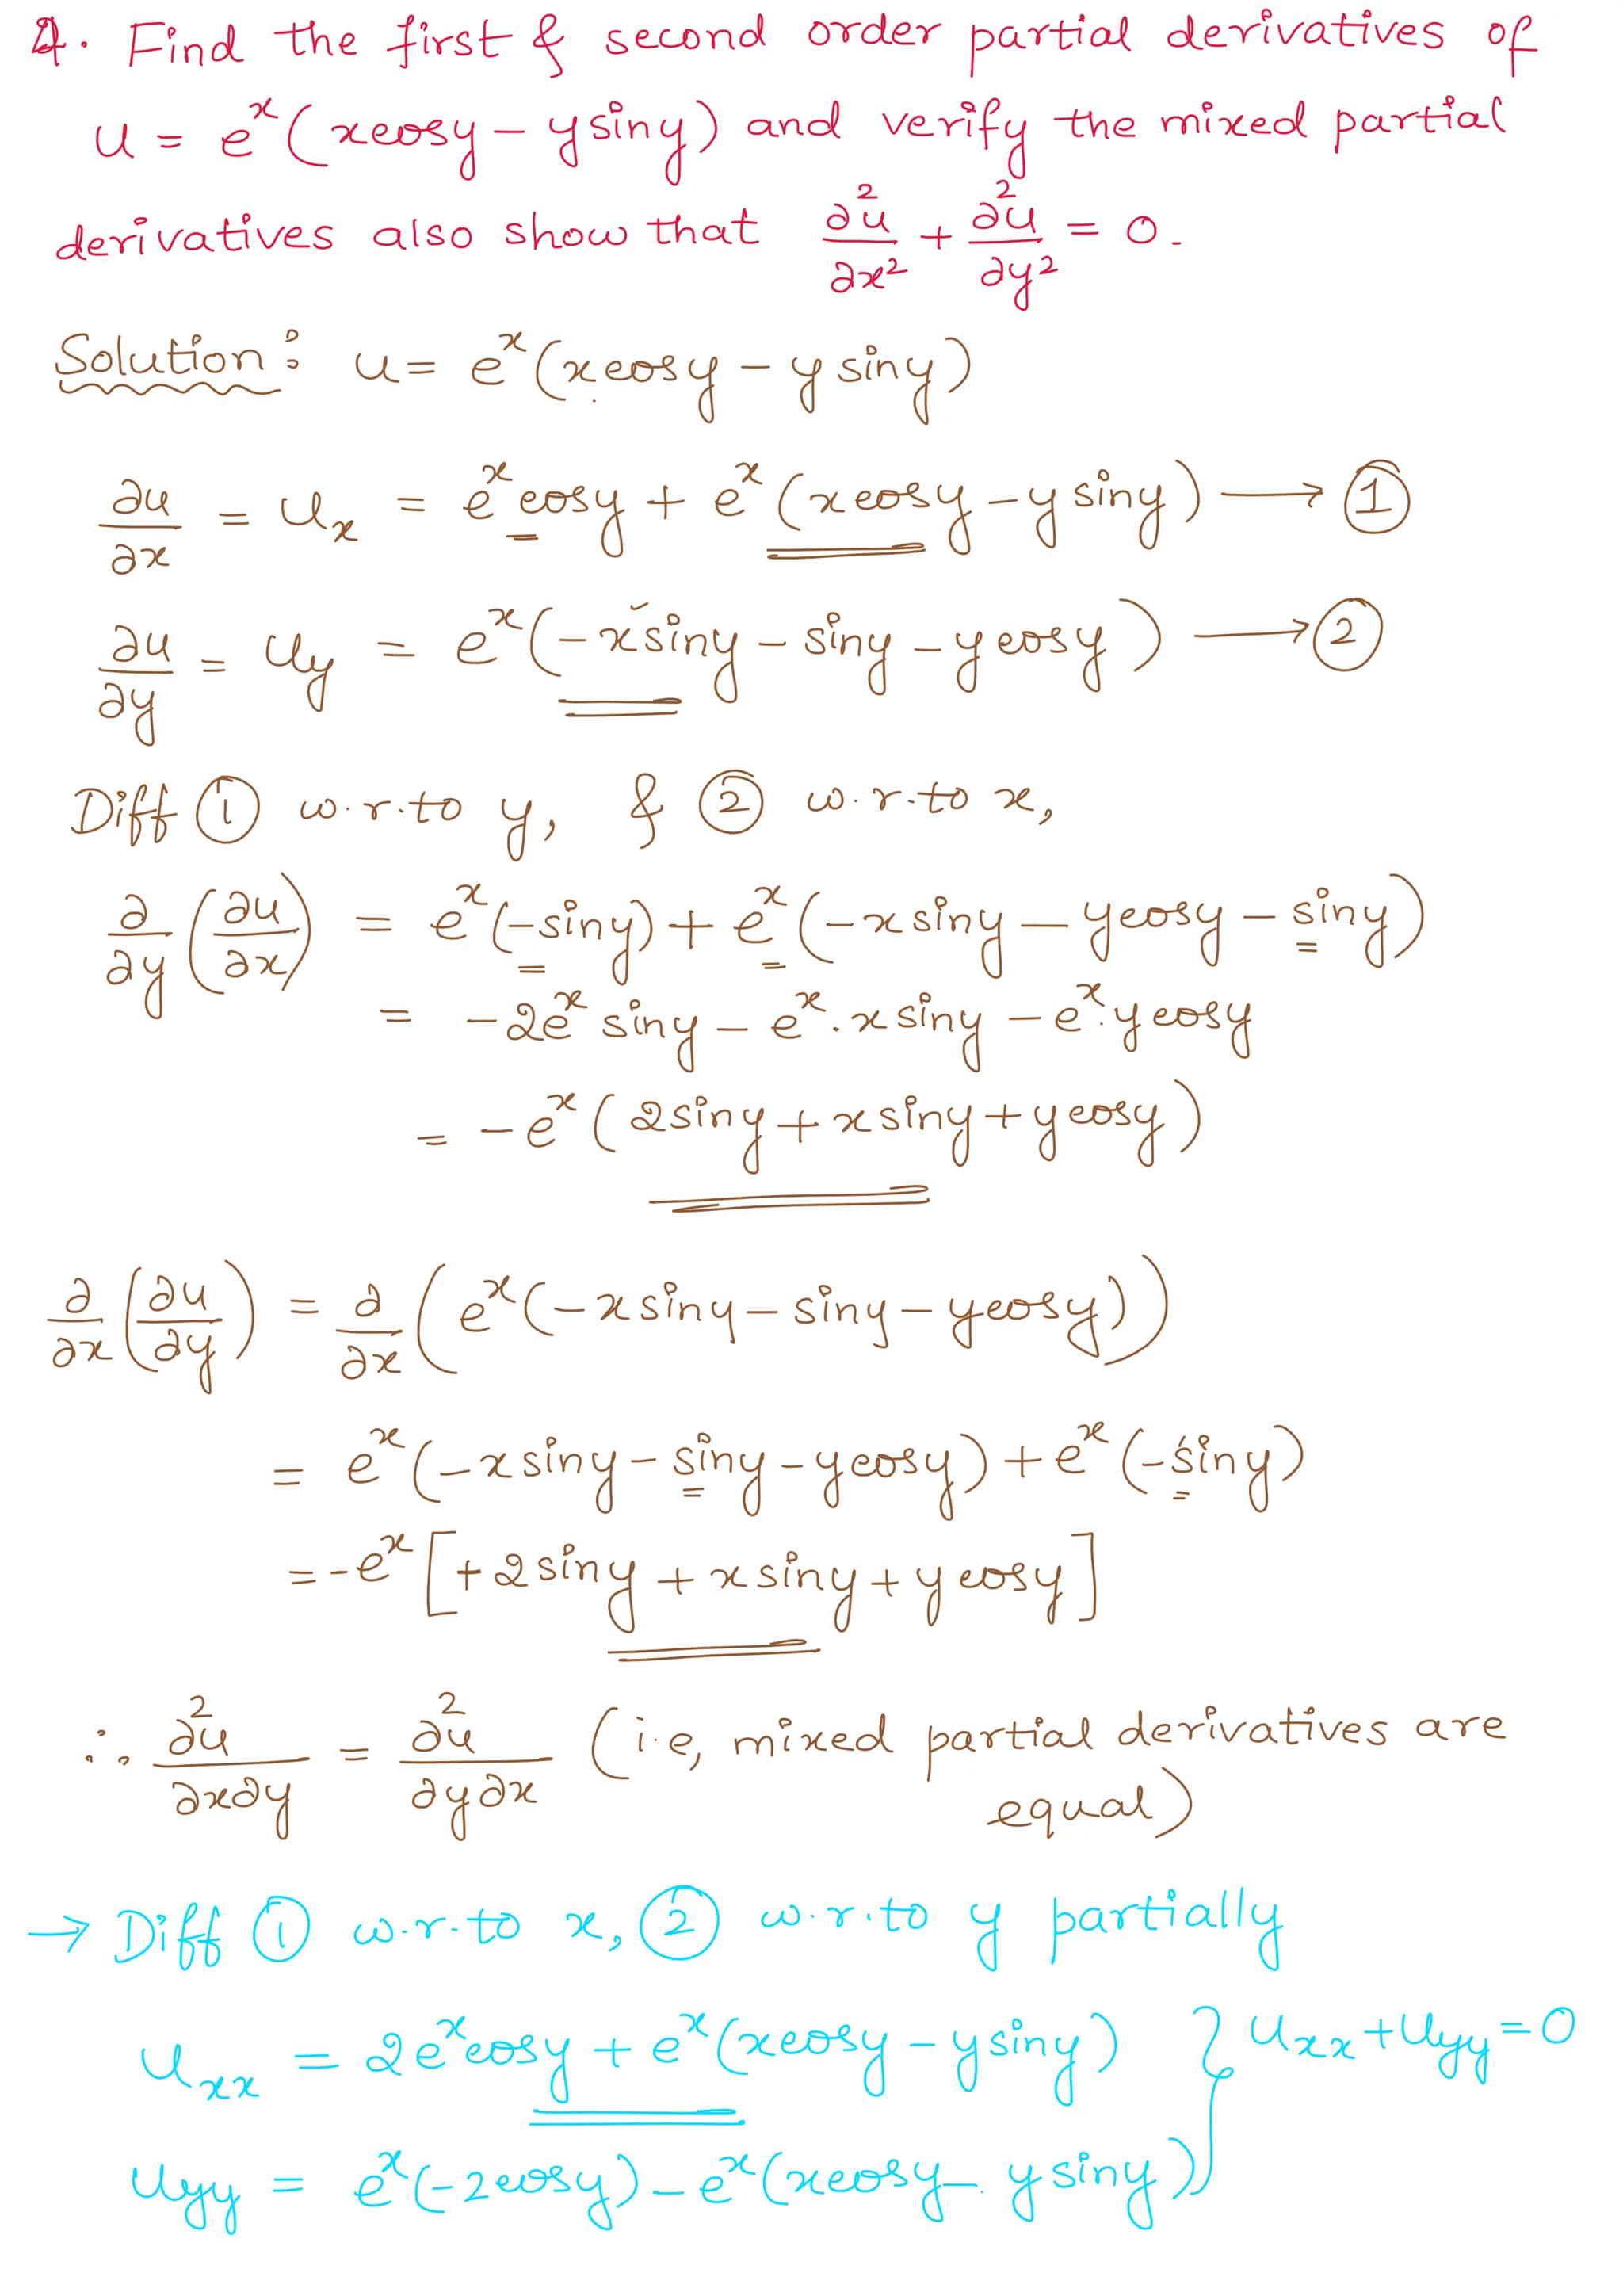 4. Find the first & second order partial derivatives of
u = e^x (x cosy - y siny) and verify the mixed partial
derivatives also show that ∂²u/∂x² + ∂²u/∂y² = 0.
Solution: u = e^x (x cosy - y siny)
∂u/∂x = u_x = e^x cosy + e^x (x cosy - y siny) → ①
∂u/∂y = u_y = e^x (-x siny - siny - y cosy) → ②
Diff ① w.r.to y, & ② w.r.to x,
∂/∂y (∂u/∂x) = e^x (-siny) + e^x (-x siny - y cosy - siny)
= -2e^x siny - e^x . x siny - e^x . y cosy
= -e^x (2siny + x siny + y cosy)
∂/∂x (∂u/∂y) = ∂/∂x (e^x (-x siny - siny - y cosy))
= e^x (-x siny - siny - y cosy) + e^x (-siny)
= -e^x [+2 siny + x siny + y cosy]
∴ ∂²u/∂x∂y = ∂²u/∂y∂x (i.e, mixed partial derivatives are
equal)
→ Diff ① w.r.to x, ② w.r.to y partially
u_xx = 2e^x cosy + e^x (x cosy - y siny) } u_xx + u_yy = 0
u_yy = e^x (-2 cosy) - e^x (x cosy - y siny)